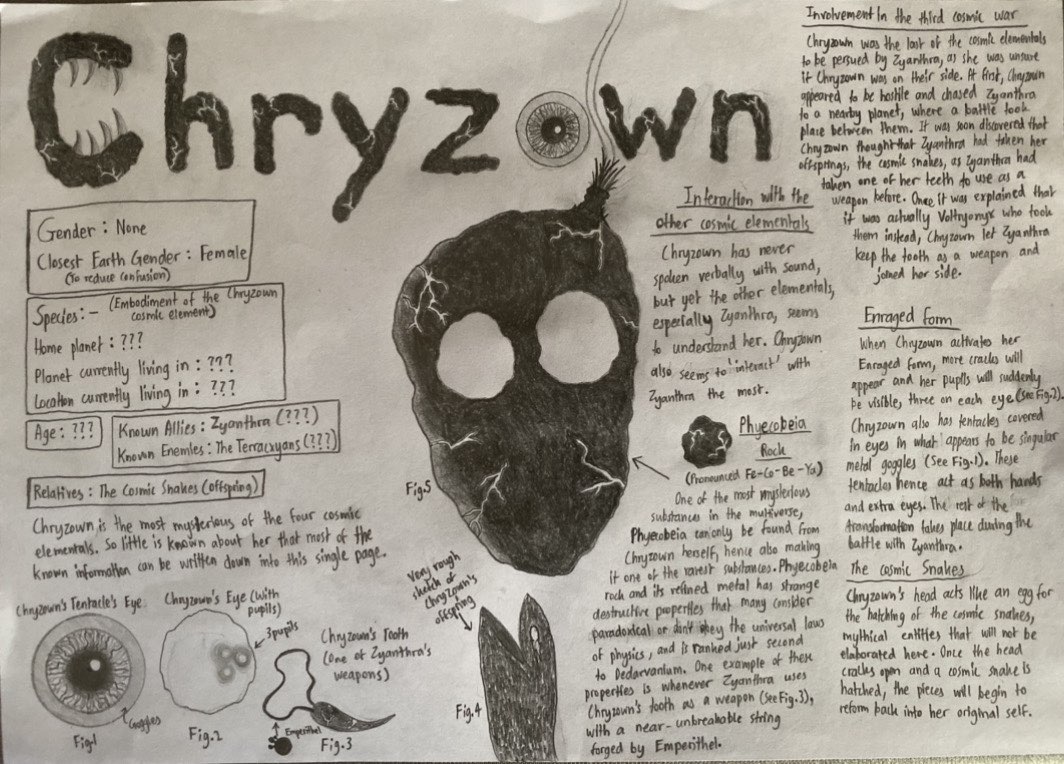 Chryzown
Gender : None
Closest Earth Gender : Female
(To reduce confusion)
Species : - (Embodiment of the Chryzown
cosmic element)
Home planet : ???
Planet currently living in : ???
Location currently living in : ???
Age : ???
Known Allies : Zyanthra (???)
Known Enemies : The Terracxyans (???)
Relatives : The Cosmic Snakes (offspring)
Chryzown is the most mysterious of the four cosmic
elementals. So little is known about her that most of the
known information can be written down into this single page.
Chryzown's Tentacle's Eye
Goggles
Fig.1
Chryzown's Eye (with
pupils)
3 pupils
Fig.2
Chryzown's Tooth
(One of Zyanthra's
weapons)
Emperithel
Fig.3
Very rough
sketch of
Chryzown's
offspring
Fig.4
Fig.5
Interaction with the
other cosmic elementals
Chryzown has never
spoken verbally with sound,
but yet the other elementals,
especially Zyanthra, seems
to understand her. Chryzown
also seems to 'interact' with
Zyanthra the most.
Phyecobeia
Rock
(Pronounced Fe-Co-Be-Ya)
One of the most mysterious
substances in the multiverse,
Phyecobeia can only be found from
Chryzown herself, hence also making
it one of the rarest substances. Phyecobeia
rock and its refined metal has strange
destructive properties that many consider
paradoxical or don't obey the universal laws
of physics, and is ranked just second
to Dedarvanium. One example of these
properties is whenever Zyanthra uses
Chryzown's tooth as a weapon (see Fig.3),
with a near-unbreakable string
forged by Emperithel.
Involvement in the third cosmic war
Chryzown was the last of the cosmic elementals
to be persued by Zyanthra, as she was unsure
if Chryzown was on their side. At first, Chryzown
appeared to be hostile and chased Zyanthra
to a nearby planet, where a battle took
place between them. It was soon discovered that
Chryzown thought that Zyanthra had taken her
offsprings, the cosmic snakes, as Zyanthra had
taken one of her teeth to use as a
weapon before. Once it was explained that
it was actually Voltryonyx who took
them instead, Chryzown let Zyanthra
keep the tooth as a weapon and
joined her side.
Enraged Form
When Chryzown activates her
Enraged Form, more cracks will
appear and her pupils will suddenly
be visible, three on each eye (See Fig.2).
Chryzown also has tentacles covered
in eyes in what appears to be singular
metal goggles (See Fig.1). These
tentacles hence act as both hands
and extra eyes. The rest of the
transformation takes place during the
battle with Zyanthra.
The Cosmic Snakes
Chryzown's head acts like an egg for
the hatching of the cosmic snakes,
mythical entities that will not be
elaborated here. Once the head
cracks open and a cosmic snake is
hatched, the pieces will begin to
reform back into her original self.